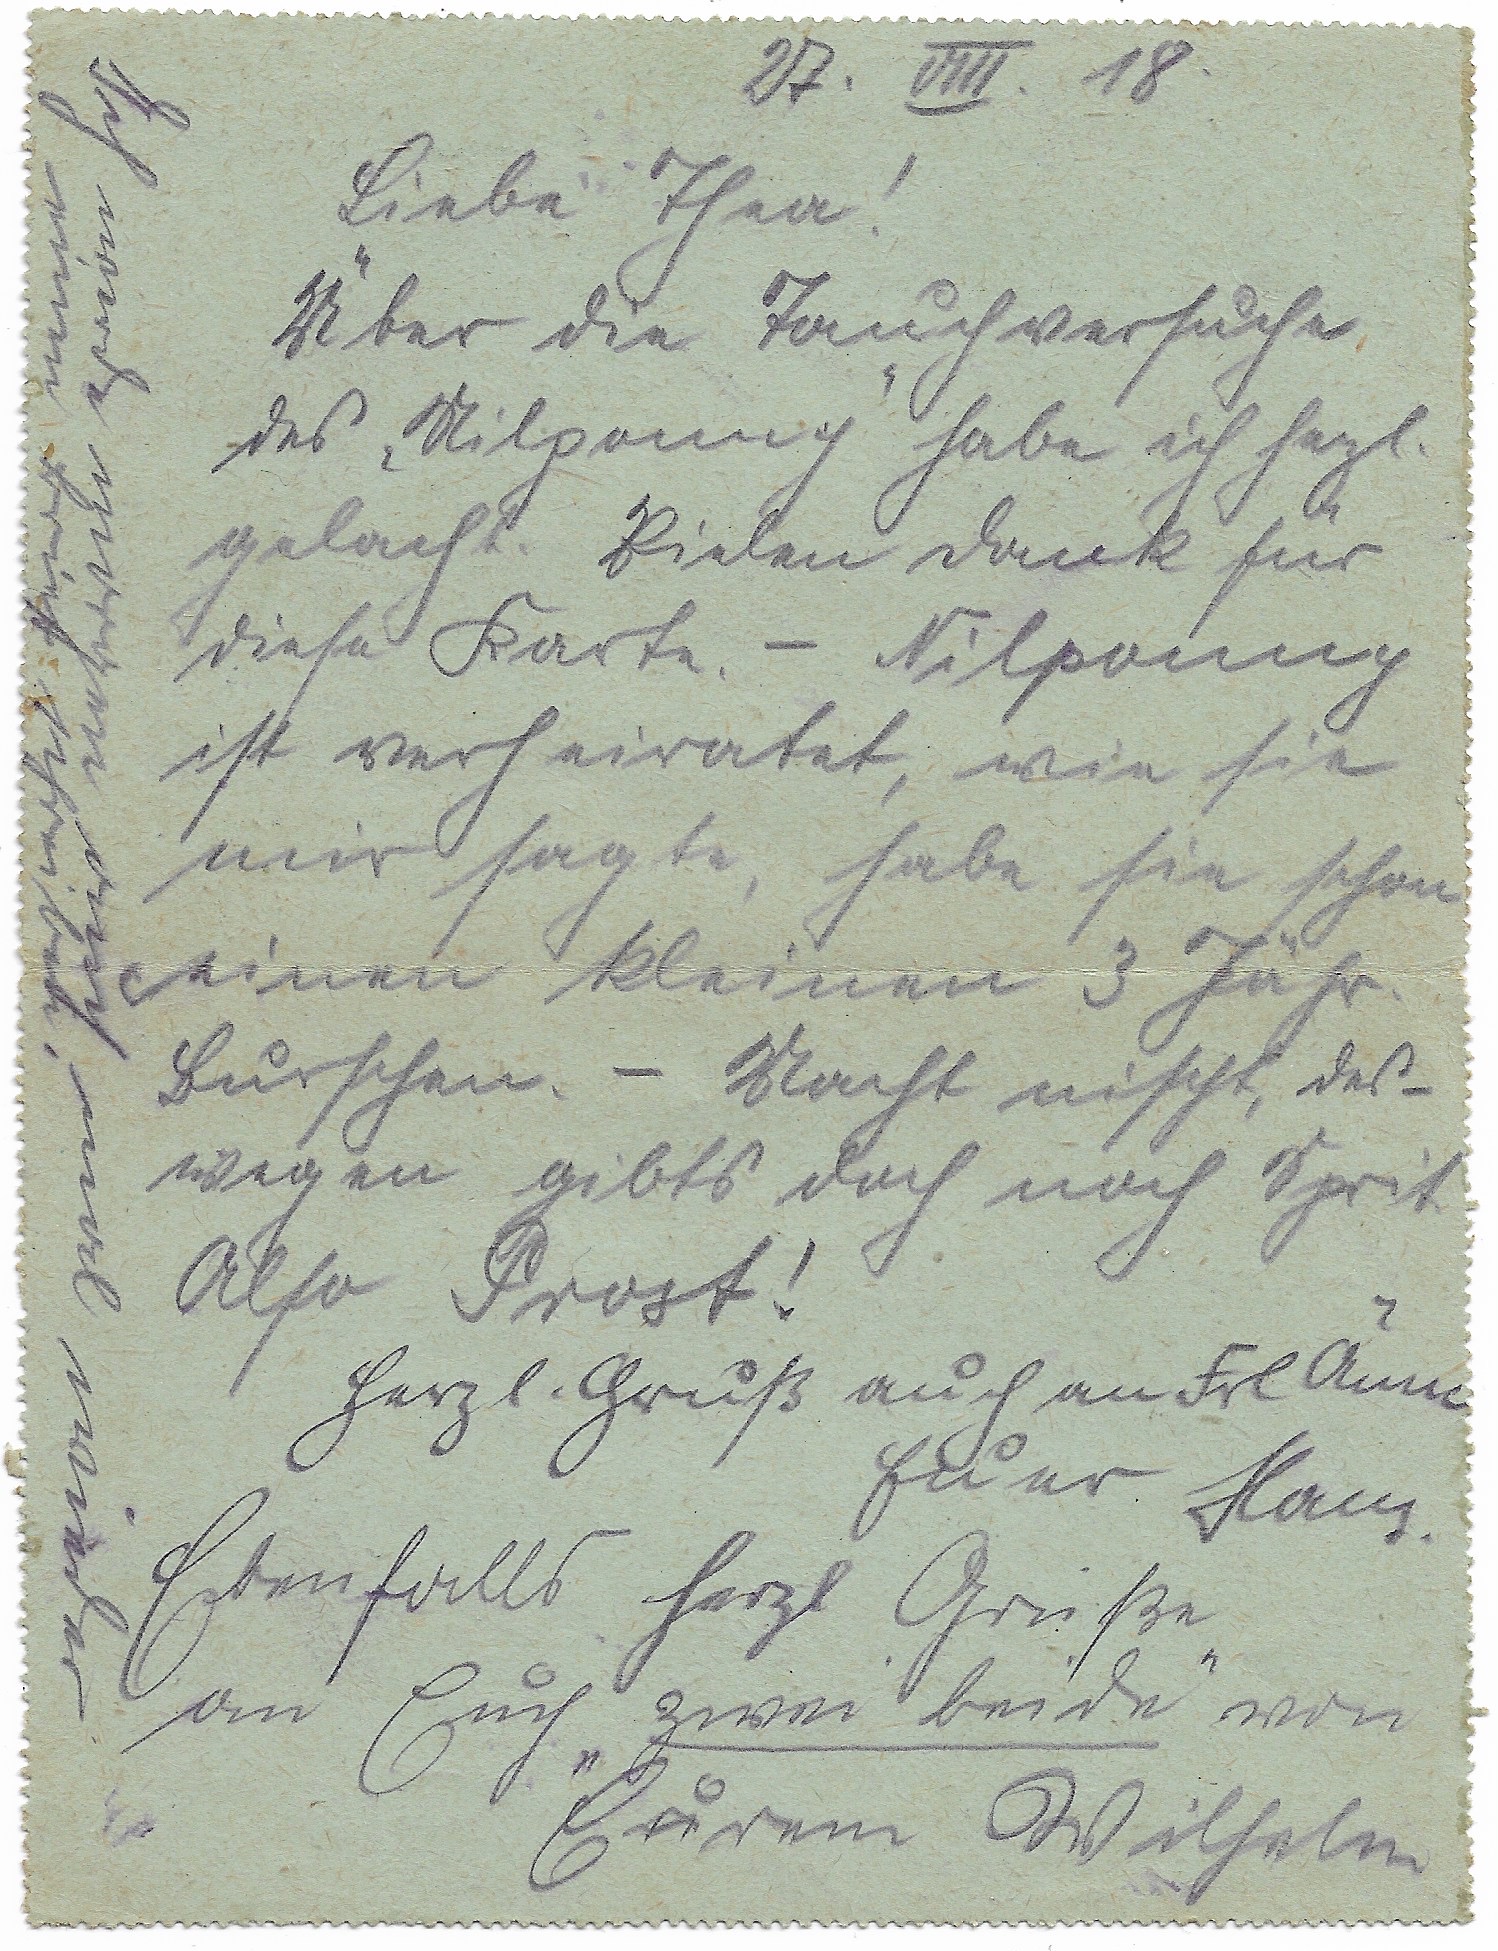 27. VIII. 18.
Liebe Thea!
Über die Tauchversuche
des „Nilponny“ habe ich herzl.
gelacht. Vielen Dank für
diese Karte. – Nilponny
ist verheiratet, wie sie
mir sagte, habe sie schon
einen kleinen 3 Jähr.
Burschen. – Macht nischt, des-
wegen gibts doch noch Sprit
Also Prost!
Herzl. Gruß auch an Frl Änne
Euer Hans.
Ebenfalls herzl Grüße
an Euch „zwei beide“ von
Eurem Wilhelm